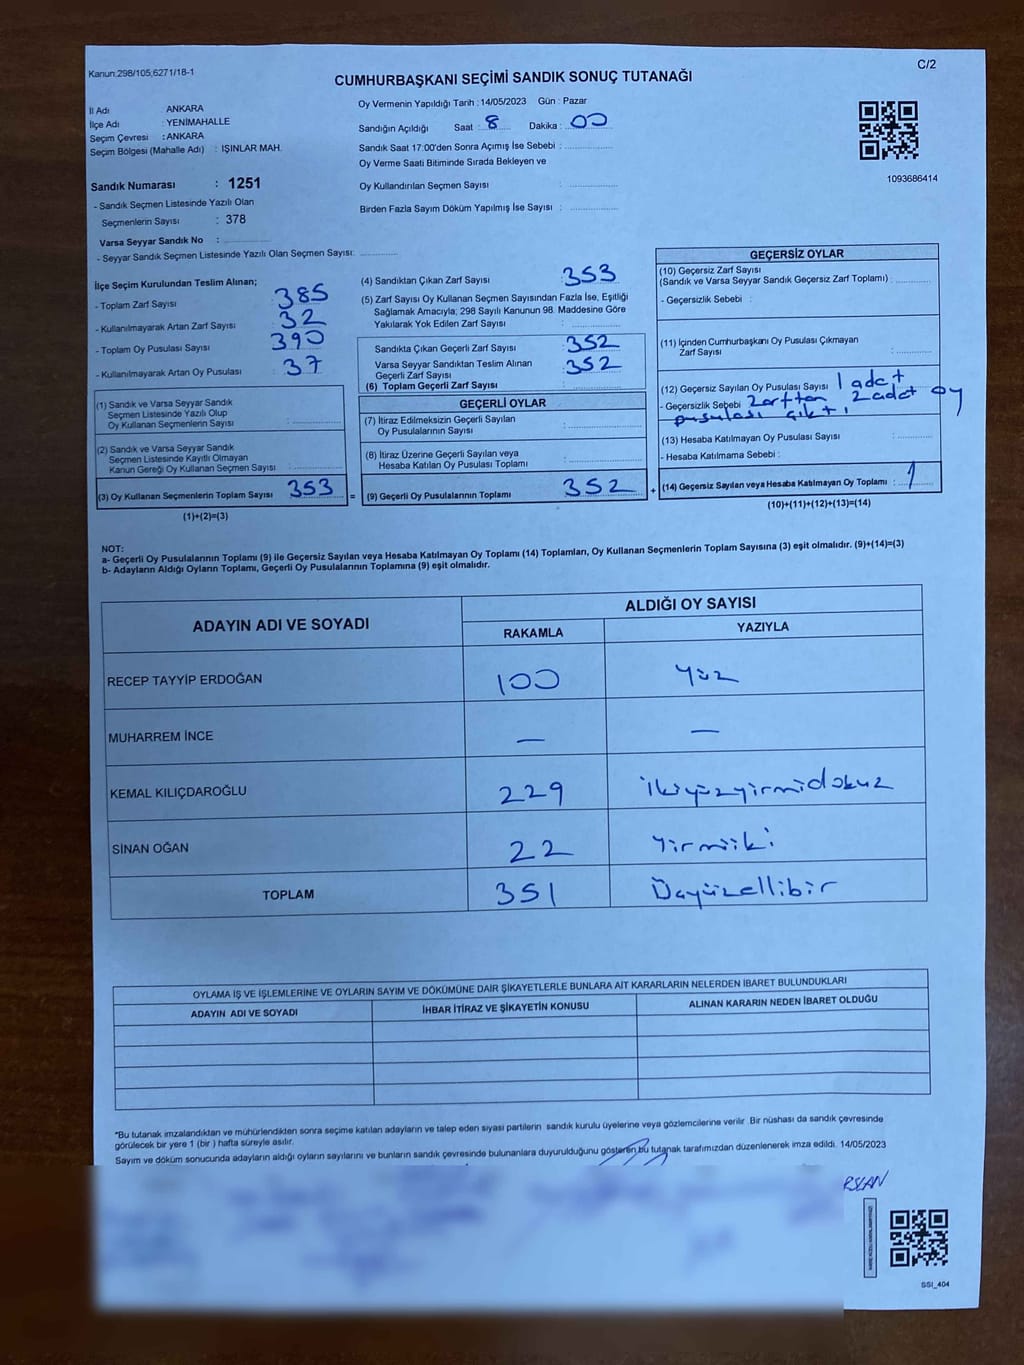 Kanun:298/105,6271/18-1
C/2
CUMHURBAŞKANI SEÇİMİ SANDIK SONUÇ TUTANAĞI
İl Adı : ANKARA
İlçe Adı : YENİMAHALLE
Seçim Çevresi : ANKARA
Seçim Bölgesi (Mahalle Adı) : IŞINLAR MAH.
Sandık Numarası : 1251
- Sandık Seçmen Listesinde Yazılı Olan
Seçmenlerin Sayısı : 378
Varsa Seyyar Sandık No :
- Seyyar Sandık Seçmen Listesinde Yazılı Olan Seçmen Sayısı:
Oy Vermenin Yapıldığı Tarih : 14/05/2023 Gün : Pazar
Sandığın Açıldığı Saat : 8 Dakika : 00
Sandık Saat 17:00'den Sonra Açımış İse Sebebi :
Oy Verme Saati Bitiminde Sırada Bekleyen ve
Oy Kullandırılan Seçmen Sayısı :
Birden Fazla Sayım Döküm Yapılmış İse Sayısı :
1093686414
İlçe Seçim Kurulundan Teslim Alınan;
- Toplam Zarf Sayısı 385
- Kullanılmayarak Artan Zarf Sayısı 32
- Toplam Oy Pusulası Sayısı 390
- Kullanılmayarak Artan Oy Pusulası 37
(1) Sandık ve Varsa Seyyar Sandık
Seçmen Listesinde Yazılı Olup
Oy Kullanan Seçmenlerin Sayısı :
(2) Sandık ve Varsa Seyyar Sandık
Seçmen Listesinde Kayıtlı Olmayan
Kanun Gereği Oy Kullanan Seçmen Sayısı :
(3) Oy Kullanan Seçmenlerin Toplam Sayısı 353 =
(1)+(2)=(3)
(4) Sandıktan Çıkan Zarf Sayısı 353
(5) Zarf Sayısı Oy Kullanan Seçmen Sayısından Fazla İse, Eşitliği
Sağlamak Amacıyla; 298 Sayılı Kanunun 98. Maddesine Göre
Yakılarak Yok Edilen Zarf Sayısı :
Sandıkta Çıkan Geçerli Zarf Sayısı 352
Varsa Seyyar Sandıktan Teslim Alınan
Geçerli Zarf Sayısı 352
(6) Toplam Geçerli Zarf Sayısı :
GEÇERLİ OYLAR
(7) İtiraz Edilmeksizin Geçerli Sayılan
Oy Pusulalarının Sayısı :
(8) İtiraz Üzerine Geçerli Sayılan veya
Hesaba Katılan Oy Pusulası Toplamı :
(9) Geçerli Oy Pusulalarının Toplamı 352 +
GEÇERSİZ OYLAR
(10) Geçersiz Zarf Sayısı
(Sandık ve Varsa Seyyar Sandık Geçersiz Zarf Toplamı) :
- Geçersizlik Sebebi :
(11) İçinden Cumhurbaşkanı Oy Pusulası Çıkmayan
Zarf Sayısı :
(12) Geçersiz Sayılan Oy Pusulası Sayısı 1 adet
- Geçersizlik Sebebi zarftan 2 adet oy
pusulası çıktı.
(13) Hesaba Katılmayan Oy Pusulası Sayısı :
- Hesaba Katılmama Sebebi :
(14) Geçersiz Sayılan veya Hesaba Katılmayan Oy Toplamı : 1
(10)+(11)+(12)+(13)=(14)
NOT:
a- Geçerli Oy Pusulalarının Toplamı (9) ile Geçersiz Sayılan veya Hesaba Katılmayan Oy Toplamı (14) Toplamları, Oy Kullanan Seçmenlerin Toplam Sayısına (3) eşit olmalıdır. (9)+(14)=(3)
b- Adayların Aldığı Oyların Toplamı, Geçerli Oy Pusulalarının Toplamına (9) eşit olmalıdır.
ADAYIN ADI VE SOYADI ALDIĞI OY SAYISI
RAKAMLA YAZIYLA
RECEP TAYYİP ERDOĞAN 100 yüz
MUHARREM İNCE — —
KEMAL KILIÇDAROĞLU 229 ikiyüzyirmidokuz
SİNAN OĞAN 22 yirmiiki
TOPLAM 351 Üçyüzellibir
OYLAMA İŞ VE İŞLEMLERİNE VE OYLARIN SAYIM VE DÖKÜMÜNE DAİR ŞİKAYETLERLE BUNLARA AİT KARARLARIN NELERDEN İBARET BULUNDUKLARI
ADAYIN ADI VE SOYADI İHBAR İTİRAZ VE ŞİKAYETİN KONUSU ALINAN KARARIN NEDEN İBARET OLDUĞU
*Bu tutanak imzalandıktan ve mühürlendikten sonra seçime katılan adayların ve talep eden siyasi partilerin sandık kurulu üyelerine veya gözlemcilerine verilir. Bir nüshası da sandık çevresinde
görülecek bir yere 1 (bir) hafta süreyle asılır.
Sayım ve döküm sonucunda adayların aldığı oyların sayılarını ve bunların sandık çevresinde bulunanlara duyurulduğunu gösteren bu tutanak tarafımızdan düzenlenerek imza edildi. 14/05/2023
RSLAN
SSI_404